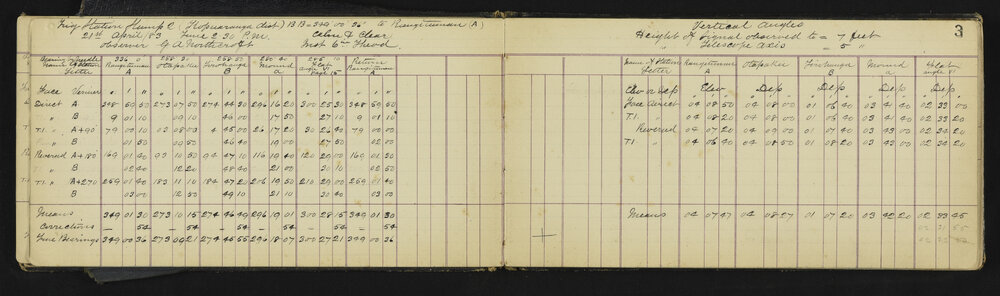 Trig Station Stump C (Kopuaranga dist) BB = 349 00 36 to Rangitumau (A)
21st April /83 Time 2.30 P.M. Calm & Clear
Observer G A Northcroft Inst 6in Theod.
Vertical Angles
Height of Signal observed to = 7 feet
" Telescope Axis = 5 "
3
Name of Station
Letter
Rangitumau A
B
Mound a
Return Rangitumau A
Face Vernier
Direct A 348 59 50 273 07 50 274 44 30 296 16 20 300 25 30 348 59 50
" B 9 01 10 09 10 46 00 17 50 27 10 9 01 10
T.1 " A+90 79 00 10 03 08 00 4 45 00 26 17 20 30 26 40 79 00 00
B 01 50 09 50 46 40 19 00 27 50 02 00
Reversed A+180 169 01 40 93 10 50 94 47 10 116 19 40 120 29 00 169 01 30
B 02 40 12 20 48 40 21 00 30 10 02 50
T.1 " A+270 259 01 40 183 11 10 184 47 20 206 19 50 210 29 00 259 01 40
B 03 00 12 50 49 10 21 10 30 40 03 00
Means 349 01 30 273 10 15 274 46 49 296 19 01 300 28 15 349 01 30
Corrections — 54 — 54 — 54 — 54 — 54 — 54
True Bearings 349 00 36 273 09 21 274 45 55 296 18 07 300 27 21 349 00 36
Name of Station
Letter
Rangitumau A
B
Mound a
Elev or Dep Elev Dep Dep Dep Dep
Face Direct 04 08 50 04 08 00 01 06 40 03 41 40 02 33 00
T.1. " 04 08 20 04 08 00 01 06 40 03 41 40 02 33 20
Reversed 04 07 20 04 09 00 01 07 40 03 43 00 02 34 20
T.1 " 04 06 40 04 08 50 01 08 20 03 43 00 02 34 20
Means 04 07 47 04 08 27 01 07 20 03 42 20 02 33 45